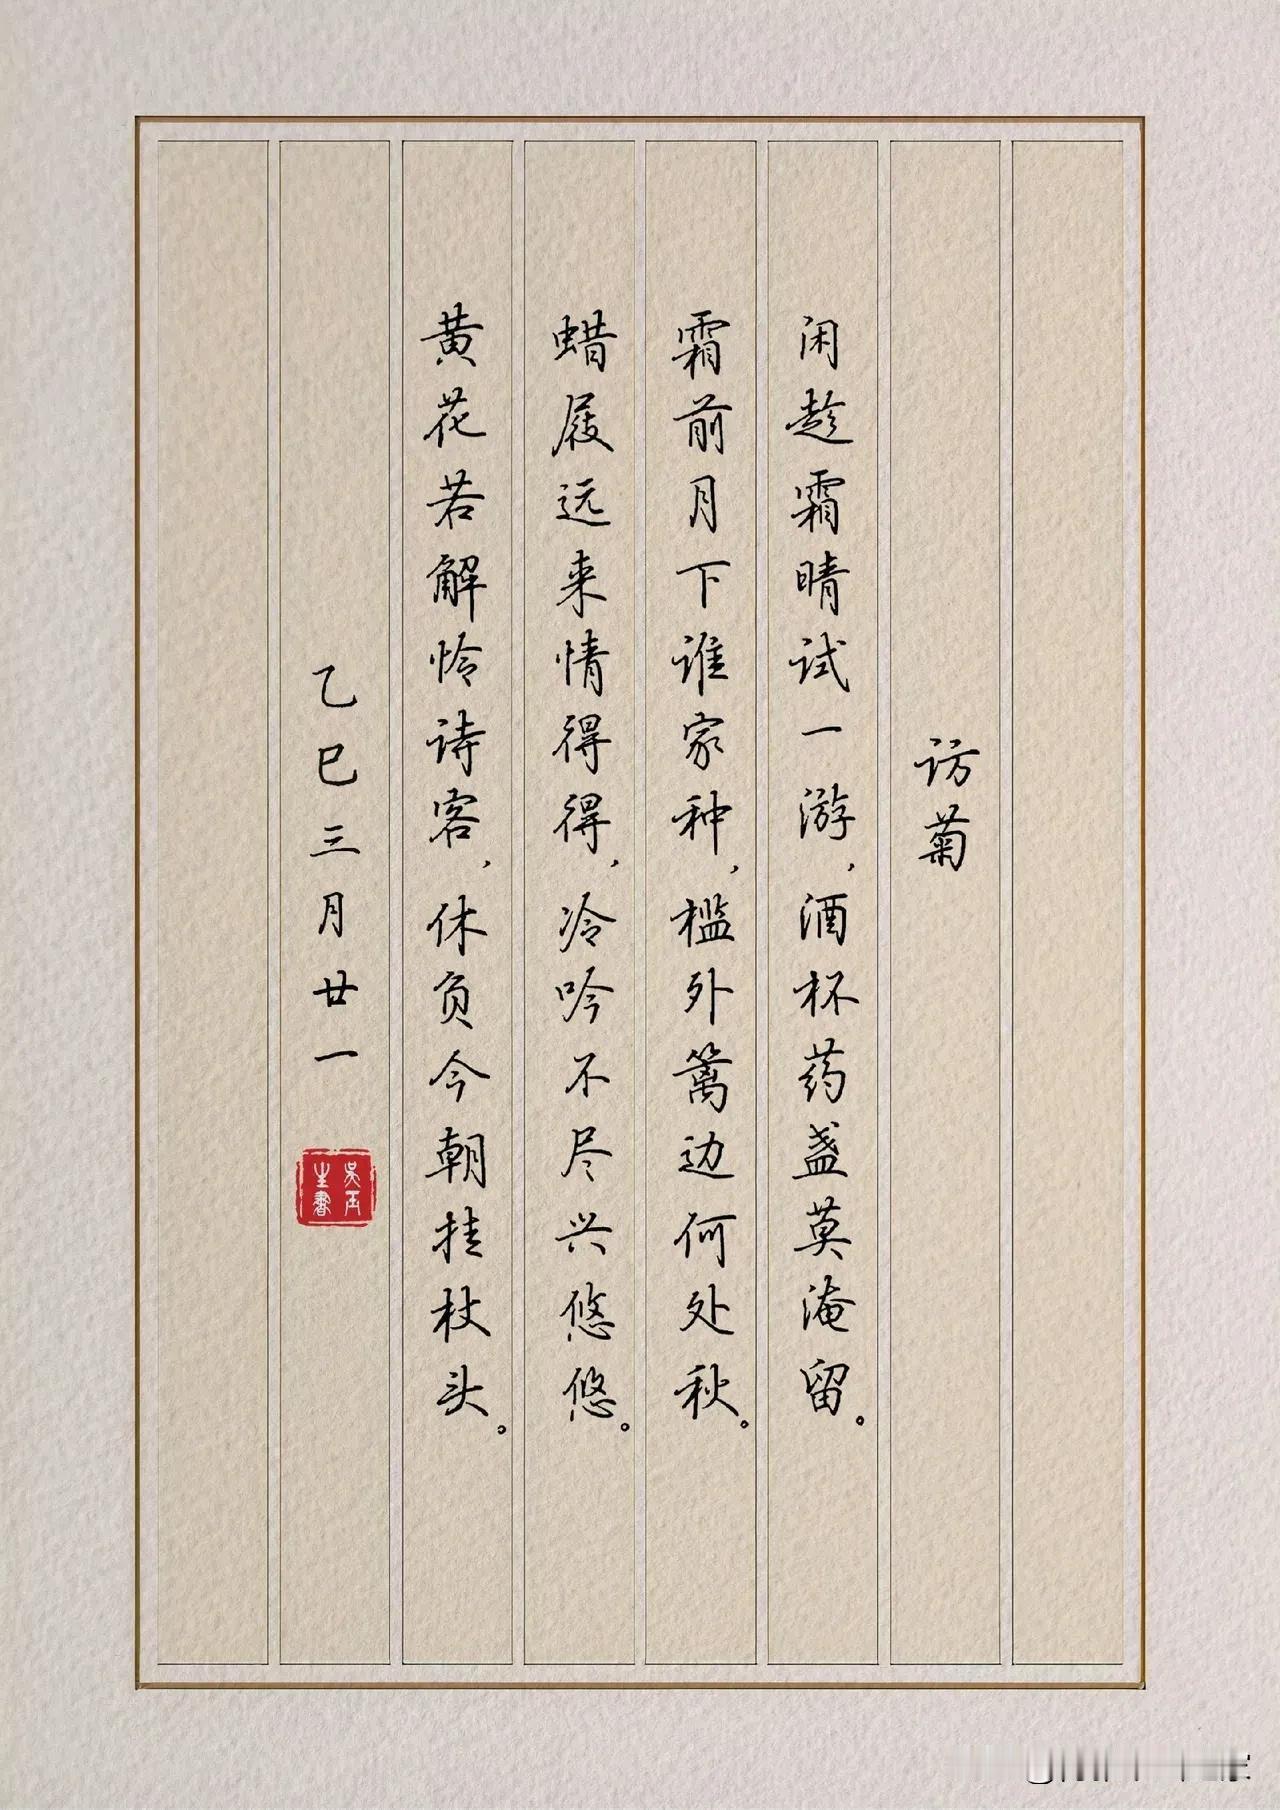 访菊
闲趁霜晴试一游，酒杯药盏莫淹留。
霜前月下谁家种，槛外篱边何处秋。
蜡屐远来情得得，冷吟不尽兴悠悠。
黄花若解怜诗客，休负今朝挂杖头。
乙巳三月廿一